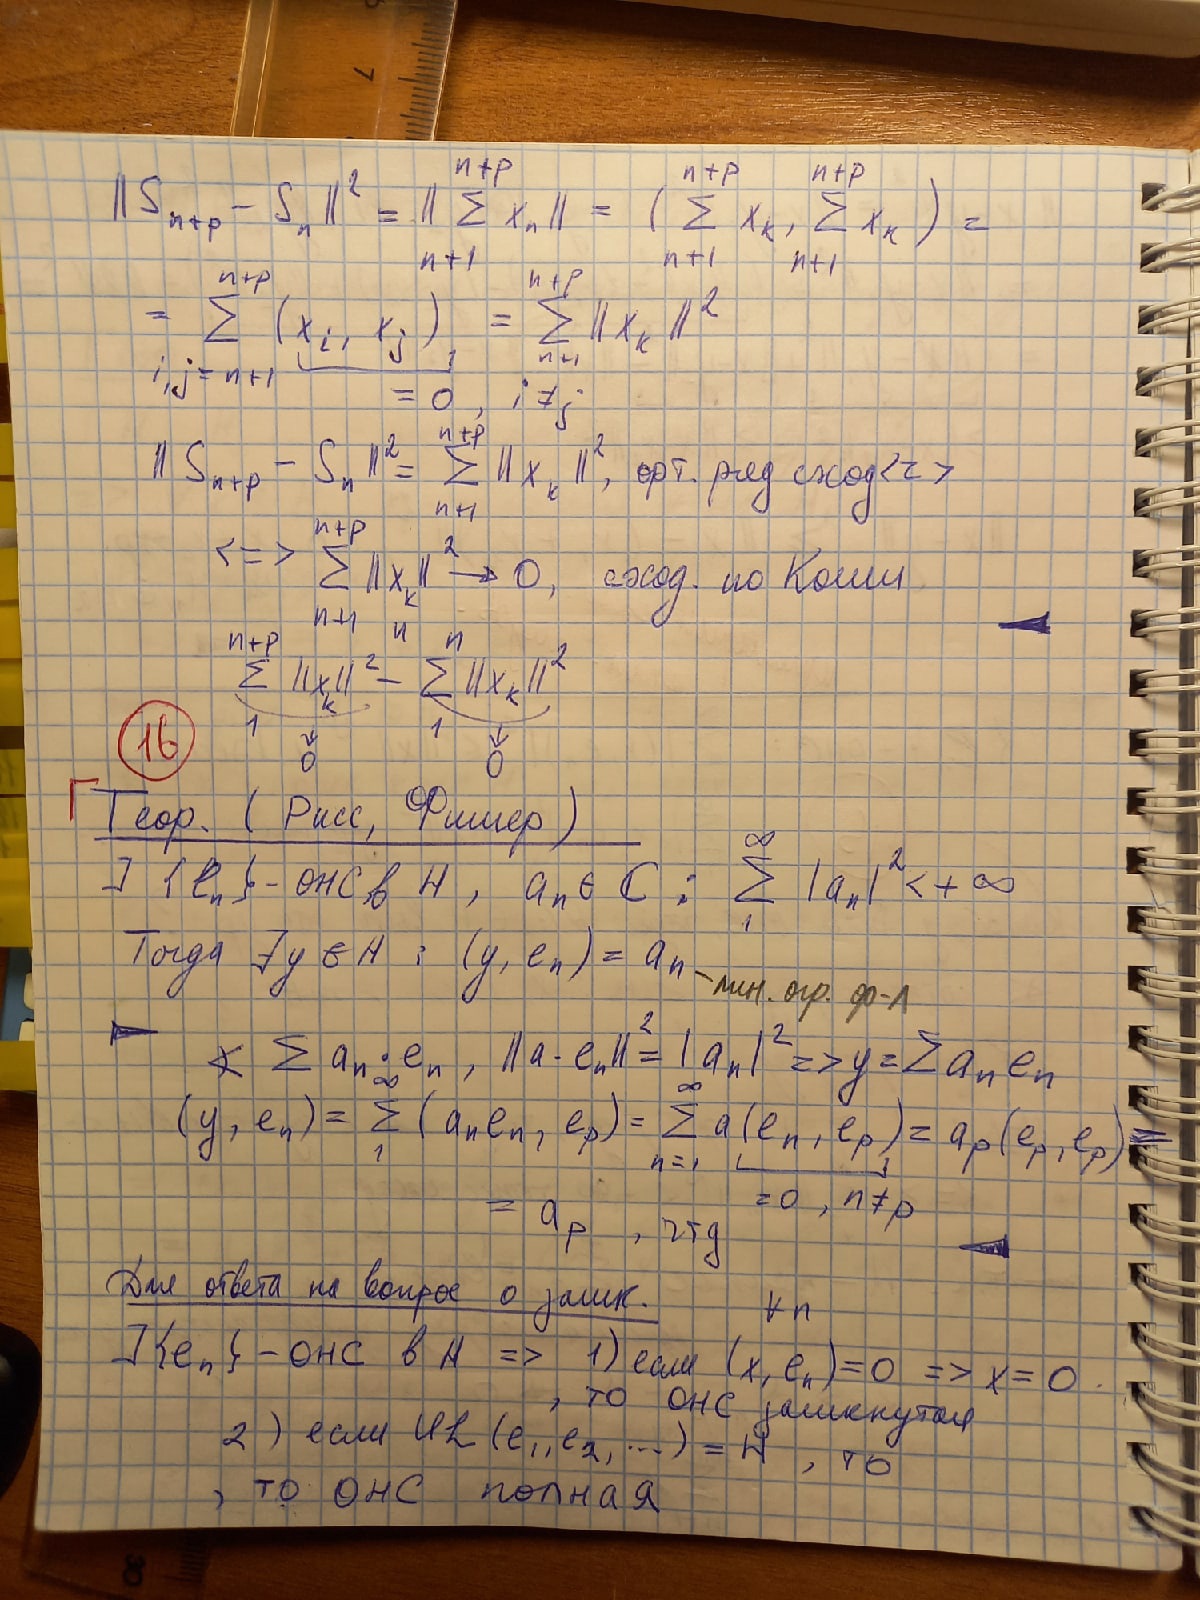 ‖S_{n+p} − S_n‖² = ‖∑_{n+1}^{n+p} x_n‖ = (∑_{n+1}^{n+p} x_k, ∑_{n+1}^{n+p} x_k) =
= ∑_{i,j=n+1}^{n+p} (x_i, x_j) = ∑_{n+1}^{n+p} ‖x_k‖²
= 0, i ≠ j
‖S_{n+p} − S_n‖² = ∑_{n+1}^{n+p} ‖x_k‖², орт. ряд сход <=>
<=> ∑_{n+1}^{n+p} ‖x_k‖² → 0, сход. по Коши
n
∑_1^{n+p} ‖x_k‖² − ∑_1^n ‖x_k‖²
↓ 0 ↓ 0
16
Теор. (Рисс, Фишер)
] {e_n} - ОНС в H, a_n ∈ C : ∑_1^∞ |a_n|² < +∞
Тогда ∃y ∈ H : (y, e_n) = a_n
лин. огр. ф-л
∑ a_n · e_n, ‖a · e_n‖² = |a_n|² => y = ∑ a_n e_n
(y, e_n) = ∑_1^∞ (a_n e_n, e_p) = ∑_{n=1}^∞ a(e_n, e_p) = a_p(e_p, e_p) =
= 0, n ≠ p
= a_p, чтд
Для ответа на вопрос о замк.
∀ n
] {e_n} - ОНС в H => 1) если (x, e_n) = 0 => x = 0
, то ОНС замкнутая
2) если ЧL (e_1, e_2, ...) = H, то
, то ОНС полная
7
30